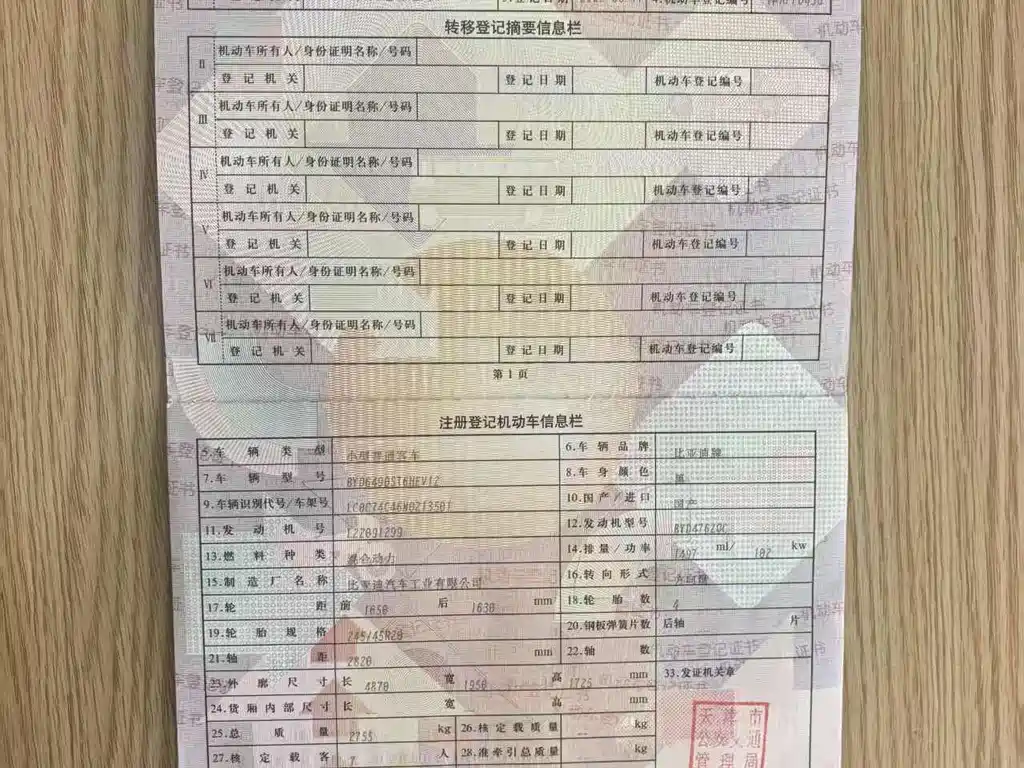 转移登记摘要信息栏
II 机动车所有人/身份证明名称/号码
登记机关 登记日期 机动车登记编号
III 机动车所有人/身份证明名称/号码
登记机关 登记日期 机动车登记编号
IV 机动车所有人/身份证明名称/号码
登记机关 登记日期 机动车登记编号
V 机动车所有人/身份证明名称/号码
登记机关 登记日期 机动车登记编号
VI 机动车所有人/身份证明名称/号码
登记机关 登记日期 机动车登记编号
VII 机动车所有人/身份证明名称/号码
登记机关 登记日期 机动车登记编号
第1页
注册登记机动车信息栏
5.车辆类型 小型普通客车 6.车辆品牌 比亚迪牌
7.车辆型号 BYD6490ST6HEV12 8.车身颜色 黑
9.车辆识别代号/车架号 10.国产/进口 国产
11.发动机号 122091299 12.发动机型号 BYD476ZQC
13.燃料种类 混合动力 14.排量/功率 1497 ml/ 102 kw
15.制造厂名称 比亚迪汽车工业有限公司 16.转向形式 方向盘
17.轮距 前 1650 后 1630 mm 18.轮胎数 4
19.轮胎规格 245/45R20 20.钢板弹簧片数 后轴 片
21.轴距 2820 mm 22.轴数
23.外廓尺寸 长 4870 宽 1950 高 1725 mm 33.发证机关章
24.货厢内部尺寸 长 宽 高 mm
25.总质量 2755 kg 26.核定载质量 -- kg
27.核定载客 7 人 28.准牵引总质量 -- kg
天津市
公安交通
管理局